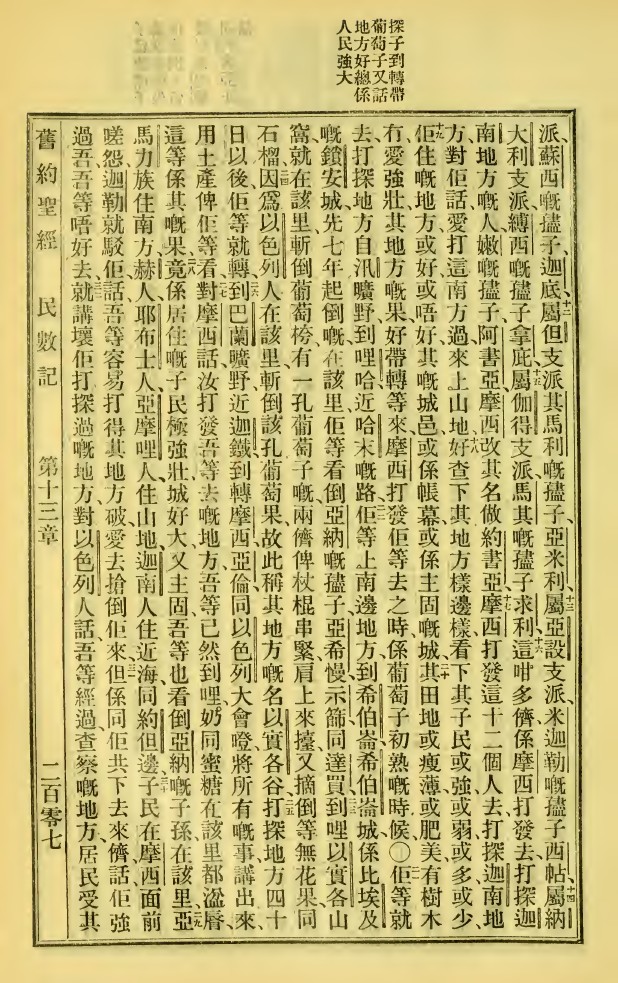 探子到轉帶
葡萄子又話
地方好總係
人民強大
派、蘇西嘅孻子、迦底、十二屬但支派、其馬利嘅孻子、亞米利、十三屬亞設支派、米迦勒嘅孻子西帖、十四屬納
大利支派、縛西嘅孻子拿庇、十五屬伽得支派、馬其嘅孻子求利、十六這咁多儕係摩西打發去打探迦
南地方嘅人、嫩嘅孻子阿書亞摩西改其名做約書亞、十七摩西打發這十二個人去打探迦南地
方、對佢話、愛打這南方過來上山地、十八好查下其地方樣邊樣、看下其子民或強或弱、或多或少、
十九佢住嘅地方或好或唔好、其嘅城邑、或係帳幕、或係主固嘅城、二十其田地或瘦薄、或肥美有樹木
冇、愛強壯其地方嘅果、好帶轉等來、摩西打發佢等去之時、係葡萄子初熟嘅時候、〇二一佢等就
去打探地方、自汛曠野到哩哈近哈末嘅路、二二佢等上南邊地方到希伯崙、希伯崙城、係比埃及
嘅鎖安城、先七年起倒嘅、在該里佢等看倒亞納嘅孻子亞希慢、示篩、同達買、二三到哩以實各山
窩、就在該里斬倒葡萄桍、有一孔葡萄子嘅、兩儕俾杖棍串緊肩上來擡、又摘倒等無花果、同
石榴、二四因爲以色列人在該里斬倒該孔葡萄果、故此稱其地方嘅名、以實各谷、二五打探地方四十
日以後、佢等就轉、二六到巴蘭曠野、近迦鐵、到轉摩西亞倫同以色列大會嘅、將所有嘅事講出來、
用土產俾佢等看、二七對摩西話、汝打發吾等去嘅地方、吾等已然到哩、奶同蜜糖在該里都溢脣、
這等係其嘅果、二八竟係居住嘅子民極強壯、城好大又主固、吾等也看倒亞納嘅子孫在該里、二九亞
馬力族住南方、赫人耶布士人、亞摩哩人、住山地、迦南人住近海同約但邊、三十子民在摩西面前
嗟怨、迦勒就駁佢話、吾等容易打得其地方破、愛去搶倒佢來、三一但係同佢共下去來儕話、佢強
過吾、吾等唔好去、三二就講壞佢打探過嘅地方、對以色列人話、吾等經過查察嘅地方、居民受其
舊約聖經 民數記 第十三章 二百零七